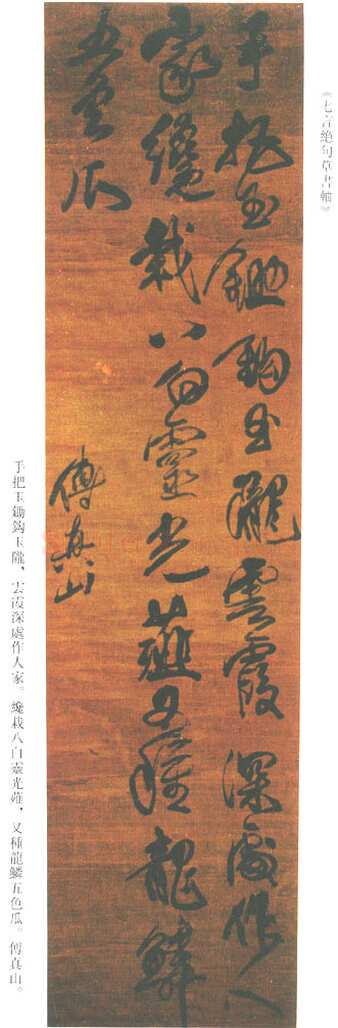 《七言绝句草書軸》
手把玉鋤鈎玉隴雲霞深處作人
家纔栽八白靈光薤又種龍鱗
五雲瓜
傅真山
手把玉鋤鈎玉隴，雲霞深處作人家。纔栽八白靈光薤，又種龍鱗五色瓜。傅真山。